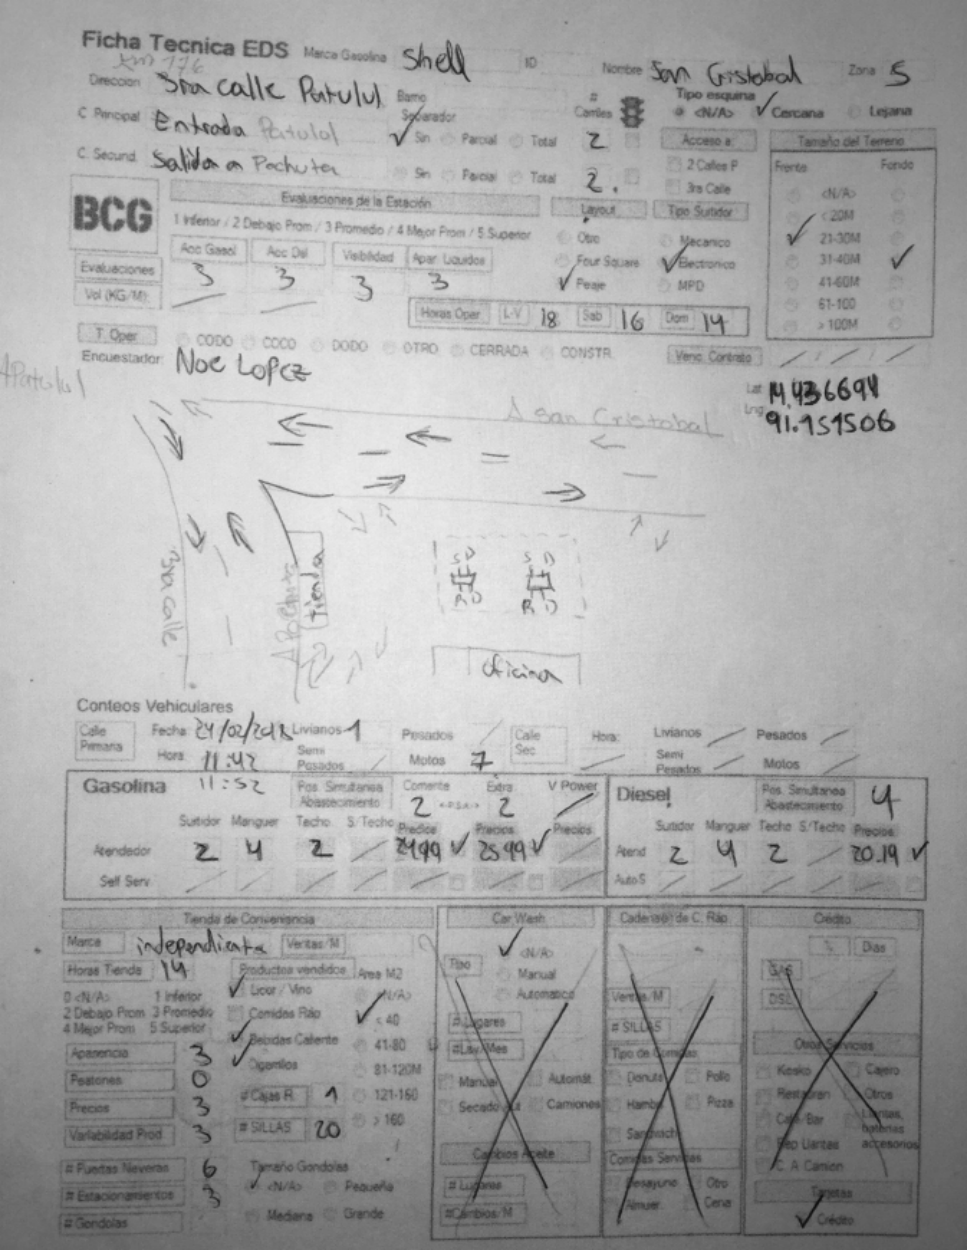 Ficha Tecnica EDS Marca Gasolina Shell ID Nombre San Cristobal Zona 5
Km 176
Direccion 3ra calle Patulul Barrio # Carriles Tipo esquina <N/A> Cercana Lejana
C Principal Entrada Patulul Separador Sin Parcial Total 2 Acceso a: Tamaño del Terreno
C. Secund. Salida a Pochuta Sin Parcial Total 2. 2 Calles P 3ra Calle Frente Fondo
BCG Evaluaciones de la Estación Layout Tipo Surtidor <N/A>
1 Inferior / 2 Debajo Prom / 3 Promedio / 4 Mejor Prom / 5 Superior Otro Mecanico < 20M
Acc Gasol Acc Dsl Visibilidad Apar. Liquidos Four Square Electronico 21-30M
Evaluaciones 3 3 3 3 Peaje MPD 31-40M
41-60M
Vol (KG/M) Horas Oper L-V 18 Sab 16 Dom 14 61-100
> 100M
T. Oper CODO COCO DODO OTRO CERRADA CONSTR. Venc. Contrato
Encuestador: Noe Lopez
A Patulul
Lat 14.436694
Lng 91.151506
A San Cristobal
3ra calle
A Pochuta
tienda
S D S D
R D R D
oficina
Conteos Vehiculares
Calle Primaria Fecha 24/02/2018 Livianos 1 Pesados Calle Sec Hora: Livianos Pesados
Hora 11:42 Semi Pesados Motos 7 Semi Pesados Motos
11:52
Gasolina Pos. Simultanea Abastecimiento Corriente 2 Extra 2 V Power Diesel Pos. Simultanea Abastecimiento 4
Surtidor Manguer Techo S/Techo Precios Precios Precios Surtidor Manguer Techo S/Techo Precios
Atendedor 2 4 2 24.99 25.99 Atend 2 4 2 20.19
Self Serv. Auto S
Tienda de Conveniencia Car Wash Cadenas de C. Ráp. Crédito
Marca independiente Ventas/M <N/A> Dias
Horas Tienda 14 Productos vendidos Area M2 Tipo Manual GAS
0 <N/A> 1 Inferior Licor / Vino <N/A> Automatico Ventas/M DSL
2 Debajo Prom 3 Promedio Comidas Ráp < 40 # Lugares # SILLAS
4 Mejor Prom 5 Superior Bebidas Caliente 41-80 #Lav/Mes Tipo de Comidas Otros Servicios
Apariencia 3 Cigarrillos 81-120M Manual Automát Donuts Pollo Kiosko Cajero
Peatones 0 # Cajas R. 1 121-160 Secado Camiones Hamb Pizza Restauran Otros
Precios 3 # SILLAS 20 > 160 Sandwich Café Bar Llantas, baterias accesorios
Variabilidad Prod 3 Cambios Aceite Comidas Servicios Rep Llantas
# Puertas Neveras 6 Tamaño Gondolas # Lugares Desayuno Otro C. A Camion
# Estacionamientos 3 <N/A> Pequeña #Cambios/M Almuer Cena Tarjetas
# Gondolas Mediana Grande Crédito